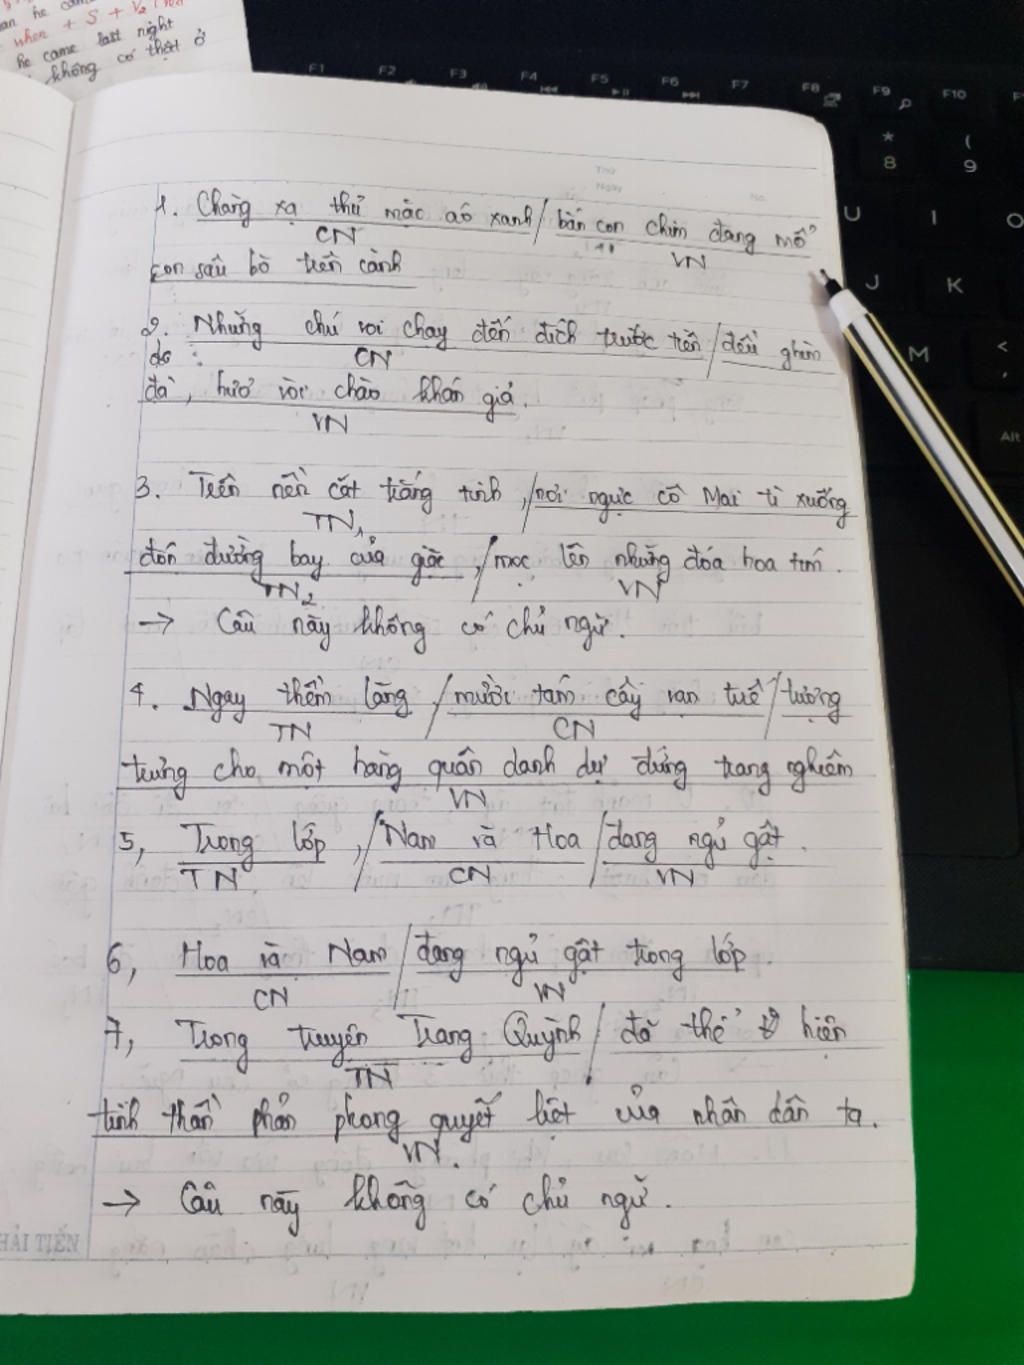 an he cam
when + S + V₂
he came last night
không có thật ở
F1 F2 F3 F4 F5 F6 F7 F8 F9 F10
* 8 ( 9
U I O
J K
M < ,
Alt
Thứ
Ngày
No.
1. Chàng xạ thủ mặc aó xanh / bắn con chim đang mổ
CN VN
con sâu bò trên cành
2. Những chú voi chạy đến đích trước tiên / đều ghìm
CN
đà, huơ vòi chào khán giả.
VN
3. Trên nền cát trắng tinh, / nơi ngực cô Mai tì xuống
TN₁
đón đường bay của giặc, / mọc lên những đóa hoa tím.
TN₂ VN
→ Câu này không có chủ ngữ.
4. Ngay thềm lăng / mười tám cây vạn tuế / tượng
TN CN
trưng cho một hàng quân danh dự đứng trang nghiêm
VN
5, Trong lớp, / Nam và Hoa / đang ngủ gật.
TN CN VN
6, Hoa và Nam / đang ngủ gật trong lớp.
CN VN
7, Trong truyện Trạng Quỳnh / đã thể hiện
TN
tinh thần phản phong quyết liệt của nhân dân ta.
VN.
→ Câu này không có chủ ngữ.
HẢI TIẾN